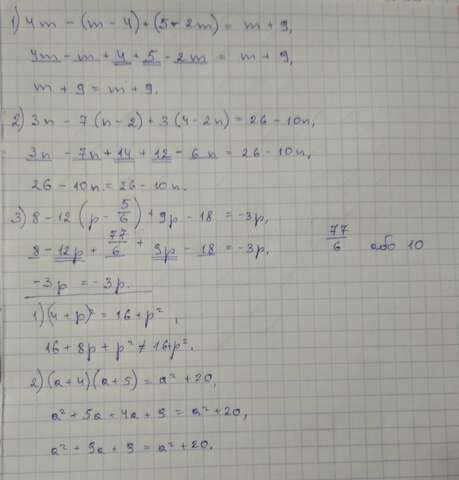 1) 4m - (m - 4) + (5 - 2m) = m + 9,
4m - m + 4 + 5 - 2m = m + 9,
m + 9 = m + 9.
2) 3n - 7 (n - 2) + 3 (4 - 2n) = 26 - 10n,
3n - 7n + 14 + 12 - 6n = 26 - 10n,
26 - 10n = 26 - 10n.
3) 8 - 12 (p - 5/6) + 9p - 18 = -3p,
8 - 12p + 77/6 + 9p - 18 = -3p,
77/6 або 10
-3p = -3p.
1) (4 + p)² = 16 + p²,
16 + 8p + p² ≠ 16 + p².
2) (a + 4) (a + 5) = a² + 20,
a² + 5a = 4a + 9 = a² + 20,
a² + 9a + 9 = a² + 20.